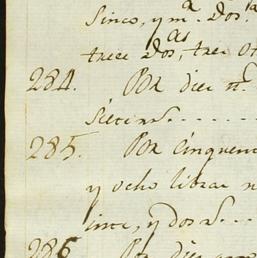 Sinco, y m.ª Dos.
trece Dos, tres
284. Por diez
Siete rs.
285. Por Cinquen
y ocho libras n
inte, y dos rs.
286 Por diez